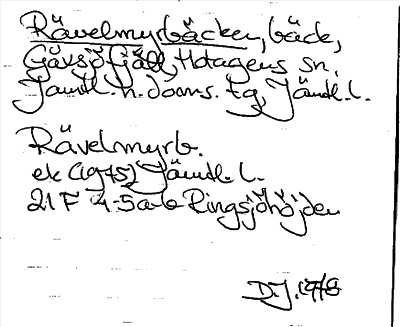 Rävelmyrbäcken, bäck,
Gåxsjöfjäll, Hotagens sn,
Jämtl. n. doms. tg, Jämtl. l.
Rävelmyrb.
ek (1975) Jämtl. l.
21 F 4-5 a-b Ringsjöhöjden
D.J. 1978